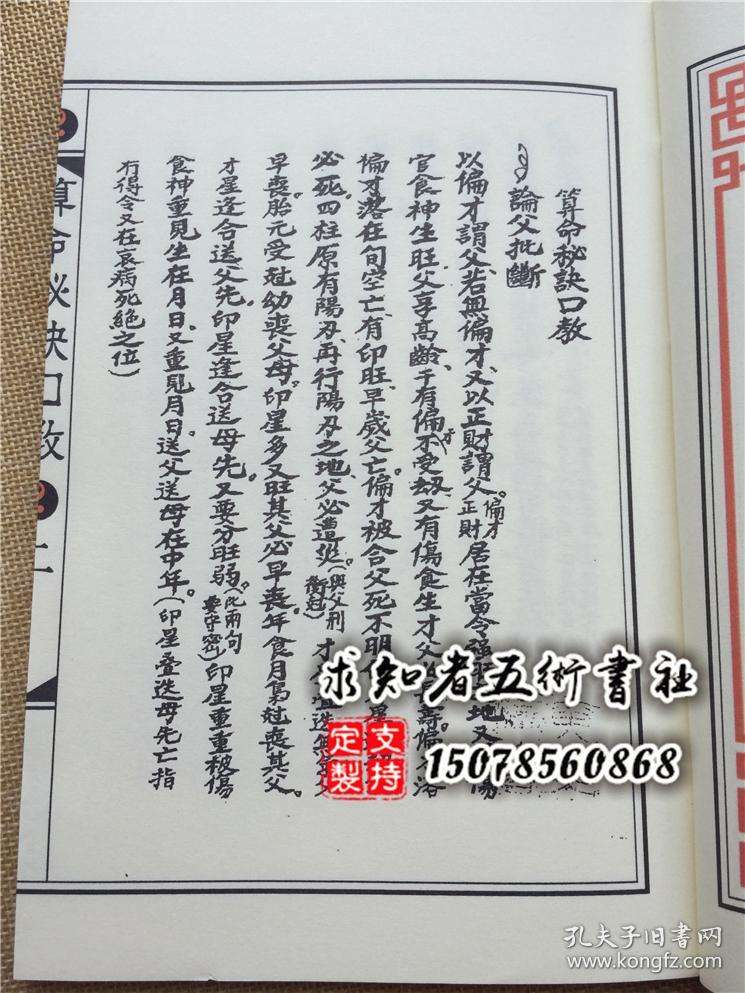 算命秘訣口教
論父批斷
以偏才謂父、若無偏才、又以正財謂父。偏才正財居在當令強旺地又
官食神生旺、父享高齡、于有偏才不受劫、又有傷食生才父
偏才落在旬空亡、有印旺、早歲父亡。偏才被合父死不明
必死。四柱原有陽刃、再行陽刃之地、父必遭災(與父刑衝尅)才
早喪胎元受尅幼喪父母。印星多又旺其父必早喪。年食月梟尅喪其父。
才星逢合送父先。印星逢合送母先。又要分旺弱。(此兩句要守密)印星重重被傷
食神重見生在月日、又重見月日。送父送母在中年。(印星疊迭母先亡指
冇得令又在衰病死絕之位)
算命秘訣口教
二
求知者五術書社
支持定製
15078560868
孔夫子旧書网
www.kongfz.com